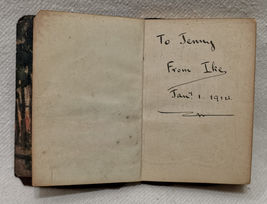 To Jenny
From Ike,
Jany 1. 1912.